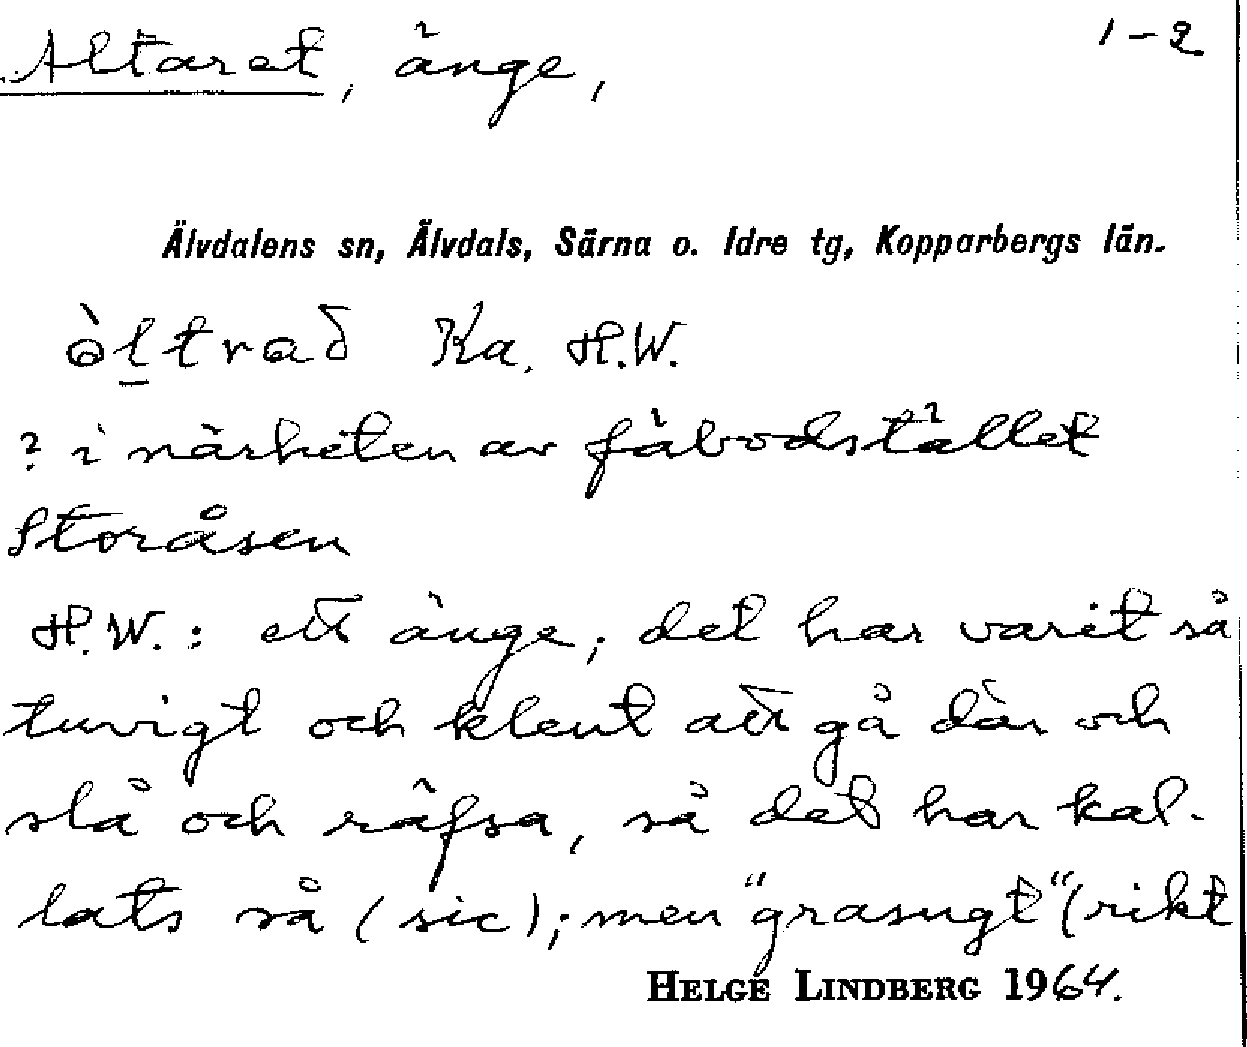 Altaret, änge, 1-2
Älvdalens sn, Älvdals, Särna o. Idre tg, Kopparbergs län.
òltrað Ka. H.W.
? i närheten av fäbodstället
Storåsen
H.W.: ett änge; det har varit så
tuvigt och klent att gå där och
slå och räfsa, så det har kal-
lats så (sic); men "grasugt" (rikt
HELGE LINDBERG 1964.